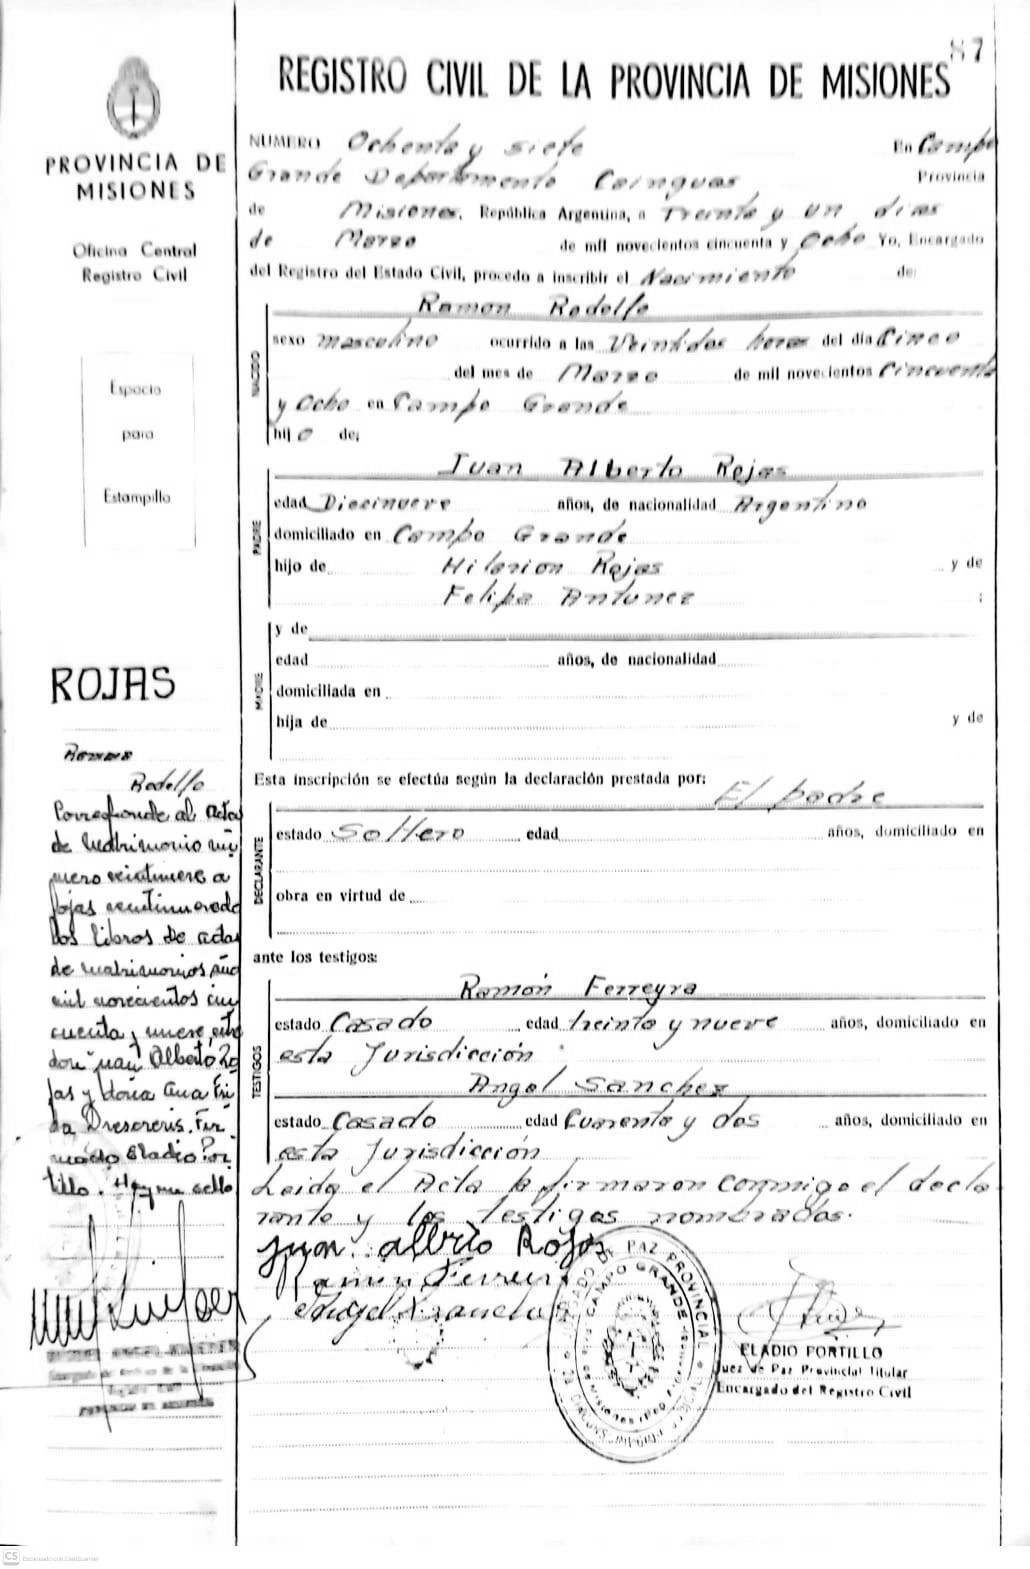 87
REGISTRO CIVIL DE LA PROVINCIA DE MISIONES
PROVINCIA DE
MISIONES
Oficina Central
Registro Civil
Espacio
para
Estampilla
NUMERO Ochenta y siete En Campo
Grande Departamento Cainguas Provincia
de Misiones, República Argentina, a Treinta y un dias
de Marzo de mil novecientos cincuenta y Ocho Yo, Encargado
del Registro del Estado Civil, procedo a inscribir el Nacimiento de:
NACIDO
Ramon Rodolfo
sexo masculino ocurrido a las Veintidos horas del día Cinco
del mes de Marzo de mil novecientos Cincuenta
y Ocho en Campo Grande
hijo de:
PADRE
Juan Alberto Rojas
edad Diecinueve años, de nacionalidad Argentino
domiciliado en Campo Grande
hijo de Hilarion Rojas y de
Felipa Antunez ;
MADRE
y de
edad años, de nacionalidad
domiciliada en
hija de y de
Esta inscripción se efectúa según la declaración prestada por:
El padre
DECLARANTE
estado Soltero edad años, domiciliado en
obra en virtud de
ante los testigos:
TESTIGOS
Ramón Ferreyra
estado Casado edad treinta y nueve años, domiciliado en
esta Jurisdicción
Angel Sanchez
estado Casado edad Cuarenta y dos años, domiciliado en
esta Jurisdicción
Leida el Acta la firmaron conmigo el decla
rante y los testigos nombrados.
Juan Alberto Rojas
Ramon Ferreira
ROJAS
Ramon
Rodolfo
Corresponde al acta
de matrimonio nú
mero veintinueve a
fojas veintinueve de
los libros de actas
de matrimonios año
mil novecientos cin
cuenta y nueve, entre
don Juan Alberto Ro
jas y doña Ana Fri
da Fir
mado Eladio Por
tillo. Hay un sello
JUZGADO DE PAZ PROVINCIAL
CAMPO GRANDE
ELADIO PORTILLO
Juez de Paz Provincial Titular
Encargado del Registro Civil
CS Escaneado con CamScanner